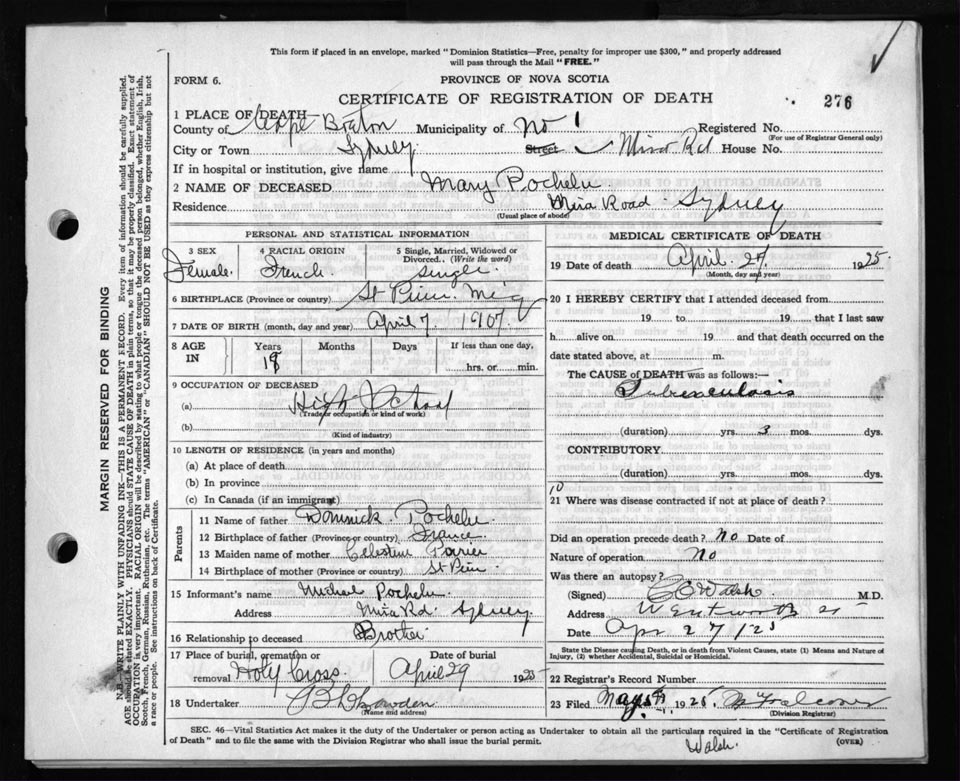 This form if placed in an envelope, marked "Dominion Statistics—Free, penalty for improper use $300," and properly addressed
will pass through the Mail "FREE."
FORM 6.
PROVINCE OF NOVA SCOTIA
CERTIFICATE OF REGISTRATION OF DEATH
276
1 PLACE OF DEATH
County of Cape Breton Municipality of No 1 Registered No.
(For use of Registrar General only)
City or Town Sydney Street Mira Rd House No.
If in hospital or institution, give name
2 NAME OF DECEASED Mary
Residence Mira Road Sydney
(Usual place of abode)
PERSONAL AND STATISTICAL INFORMATION
3 SEX 4 RACIAL ORIGIN 5 Single, Married, Widowed or
Divorced.. (Write the word)
Female. French single
6 BIRTHPLACE (Province or country) St
7 DATE OF BIRTH (month, day and year) April 7. 1907.
8 AGE IN Years Months Days If less than one day,
18 hrs. or min.
9 OCCUPATION OF DECEASED
(a) High School
(Trade or occupation or kind of work)
(b)
(Kind of industry)
10 LENGTH OF RESIDENCE (in years and months)
(a) At place of death
(b) In province
(c) In Canada (if an immigrant)
Parents
11 Name of father Dominick
12 Birthplace of father (Province or country) France
13 Maiden name of mother Celestine Poirier
14 Birthplace of mother (Province or country) St
15 Informant's name Michael
Address Mira Rd. Sydney
16 Relationship to deceased Brother
17 Place of burial, cremation or removal Holy Cross Date of burial April 29 1925
18 Undertaker
(Name and address)
MEDICAL CERTIFICATE OF DEATH
19 Date of death April 27. 1925.
(Month, day and year)
20 I HEREBY CERTIFY that I attended deceased from
19 to 19 that I last saw
h alive on 19 and that death occurred on the
date stated above, at m.
The CAUSE of DEATH was as follows:—
Tuberculosis
(duration) yrs. 3 mos. dys.
CONTRIBUTORY
(duration) yrs. mos. dys.
10
21 Where was disease contracted if not at place of death?
Did an operation precede death? No Date of
Nature of operation No
Was there an autopsy?
(Signed) Walsh M.D.
Address Wentworth St
Date Apr 27/25
State the Disease causing Death, or in death from Violent Causes, state (1) Means and Nature of
Injury, (2) whether Accidental, Suicidal or Homicidal.
22 Registrar's Record Number
23 Filed May 1925
(Division Registrar)
SEC. 46—Vital Statistics Act makes it the duty of the Undertaker or person acting as Undertaker to obtain all the particulars required in the "Certificate of Registration
of Death" and to file the same with the Division Registrar who shall issue the burial permit.
(OVER)
Walsh.
MARGIN RESERVED FOR BINDING
N.B.—WRITE PLAINLY WITH UNFADING INK—THIS IS A PERMANENT RECORD. Every item of information should be carefully supplied.
AGE should be stated EXACTLY. PHYSICIANS should STATE CAUSE OF DEATH in plain terms, so that it may be properly classified. Exact statement of
OCCUPATION is very important. RACIAL ORIGIN will be described by stating to what people or tongue the deceased person belonged, whether English, Irish,
Scotch, French, German, Russian, Ruthenian, etc. The terms "AMERICAN" or "CANADIAN" SHOULD NOT BE USED as they express citizenship but not
a race or people. See instructions on back of Certificate.